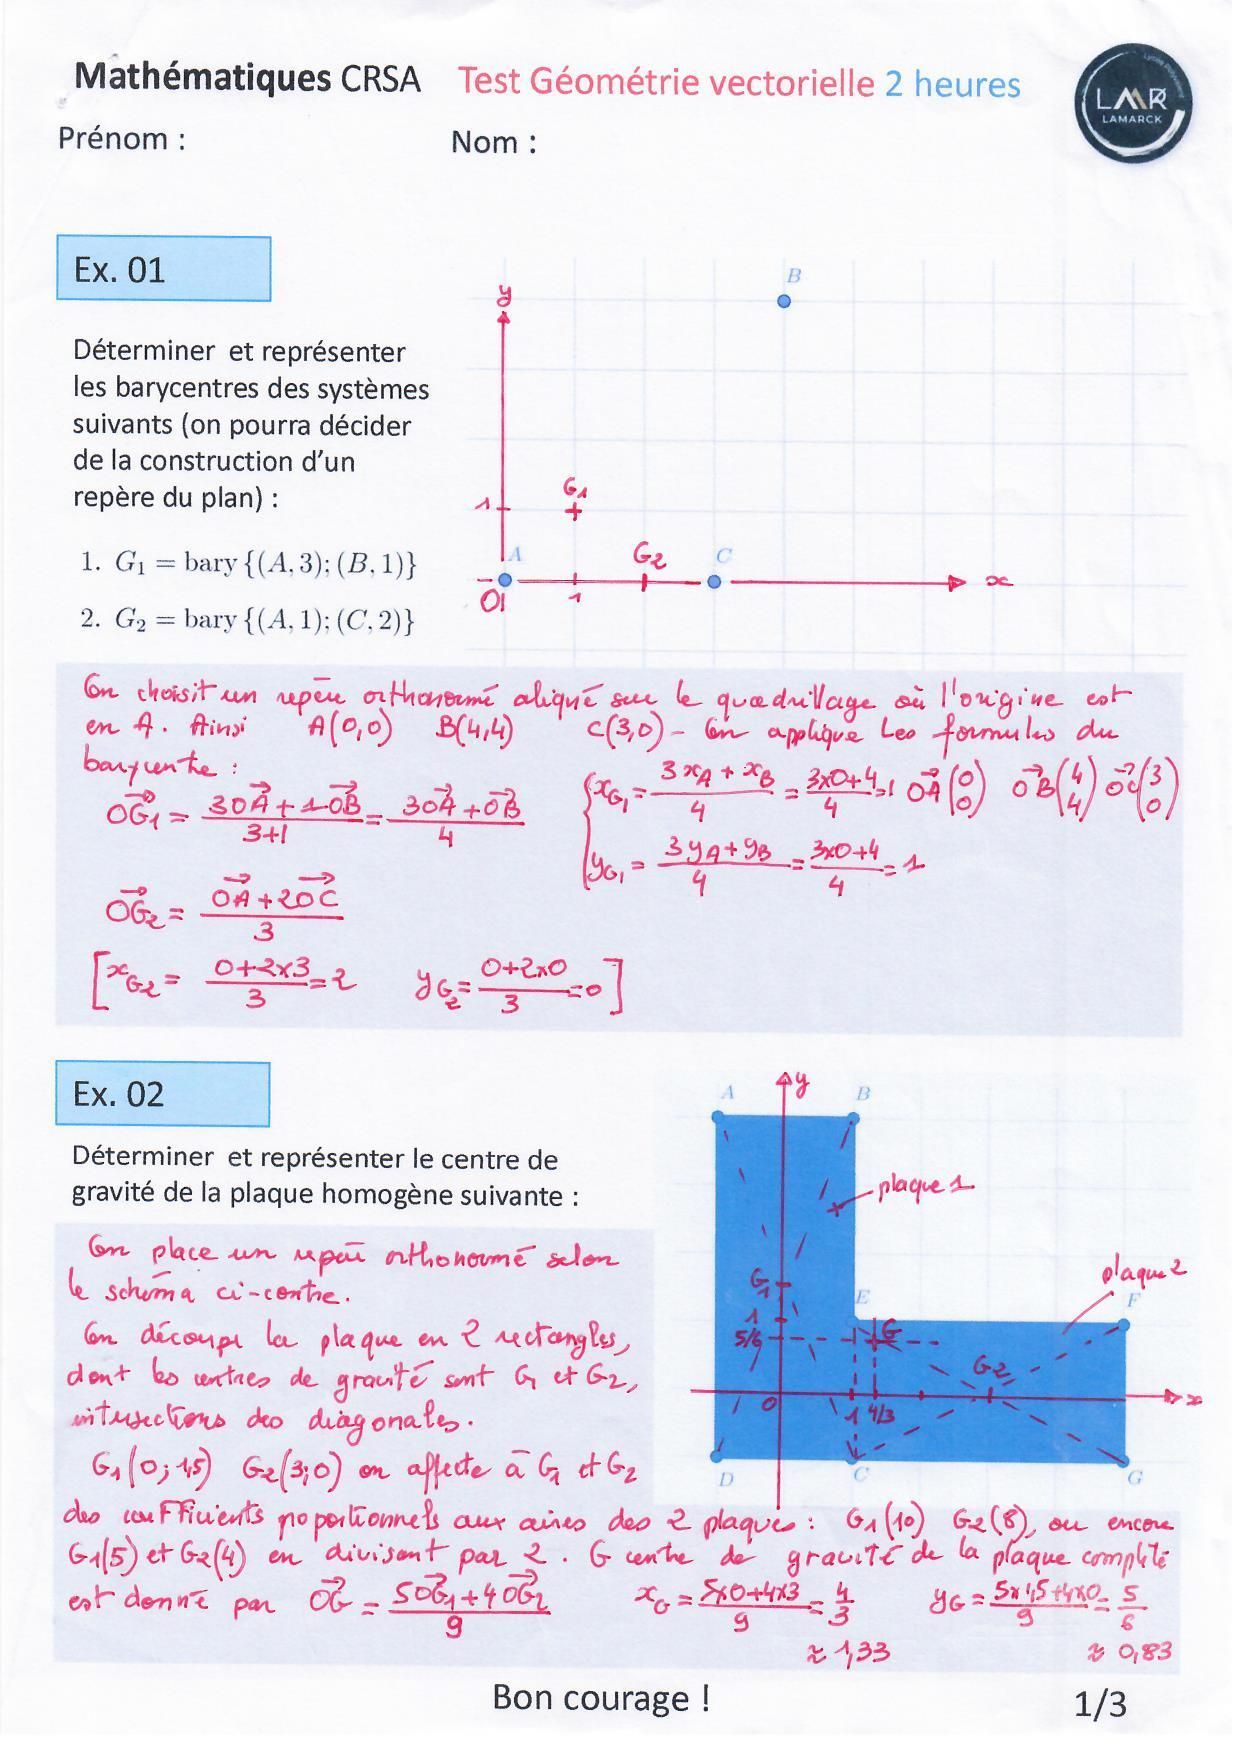 Mathématiques CRSA Test Géométrie vectorielle 2 heures
LMR
LAMARCK
Prénom :
Nom :
Ex. 01
Déterminer et représenter
les barycentres des systèmes
suivants (on pourra décider
de la construction d'un
repère du plan) :
1. G₁ = bary {(A, 3); (B, 1)}
2. G₂ = bary {(A, 1); (C, 2)}
B
y
G₁
1
A
G₂
C
x
O
1
On choisit un repère orthonormé aligné sur le quadrillage où l'origine est
en A. Ainsi A(0,0) B(4,4) C(3,0) - On applique les formules du
barycentre :
OG₁ = (3OA + 1·OB)/(3+1) = (3OA + OB)/4
x_G₁ = (3x_A + x_B)/4 = (3×0+4)/4 = 1 OA(0 0) OB(4 4) OC(3 0)
y_G₁ = (3y_A + y_B)/4 = (3×0+4)/4 = 1
OG₂ = (OA + 2OC)/3
[x_G₂ = (0+2×3)/3 = 2 y_G₂ = (0+2×0)/3 = 0]
Ex. 02
Déterminer et représenter le centre de
gravité de la plaque homogène suivante :
A
y
B
plaque 1
plaque 2
G₁
E
F
1
5/6
G
G₂
O
1
4/3
x
D
C
G
On place un repère orthonormé selon
le schéma ci-contre.
On découpe la plaque en 2 rectangles,
dont les centres de gravité sont G₁ et G₂,
intersections des diagonales.
G₁(0 ; 1,5) G₂(3;0) on affecte à G₁ et G₂
des coefficients proportionnels aux aires des 2 plaques : G₁(10) G₂(8), ou encore
G₁(5) et G₂(4) en divisant par 2. G centre de gravité de la plaque complète
est donné par OG = (5OG₁ + 4OG₂)/9 x_G = (5×0+4×3)/9 = 4/3 y_G = (5×1,5+4×0)/9 = 5/6
≈ 1,33 ≈ 0,83
Bon courage !
1/3